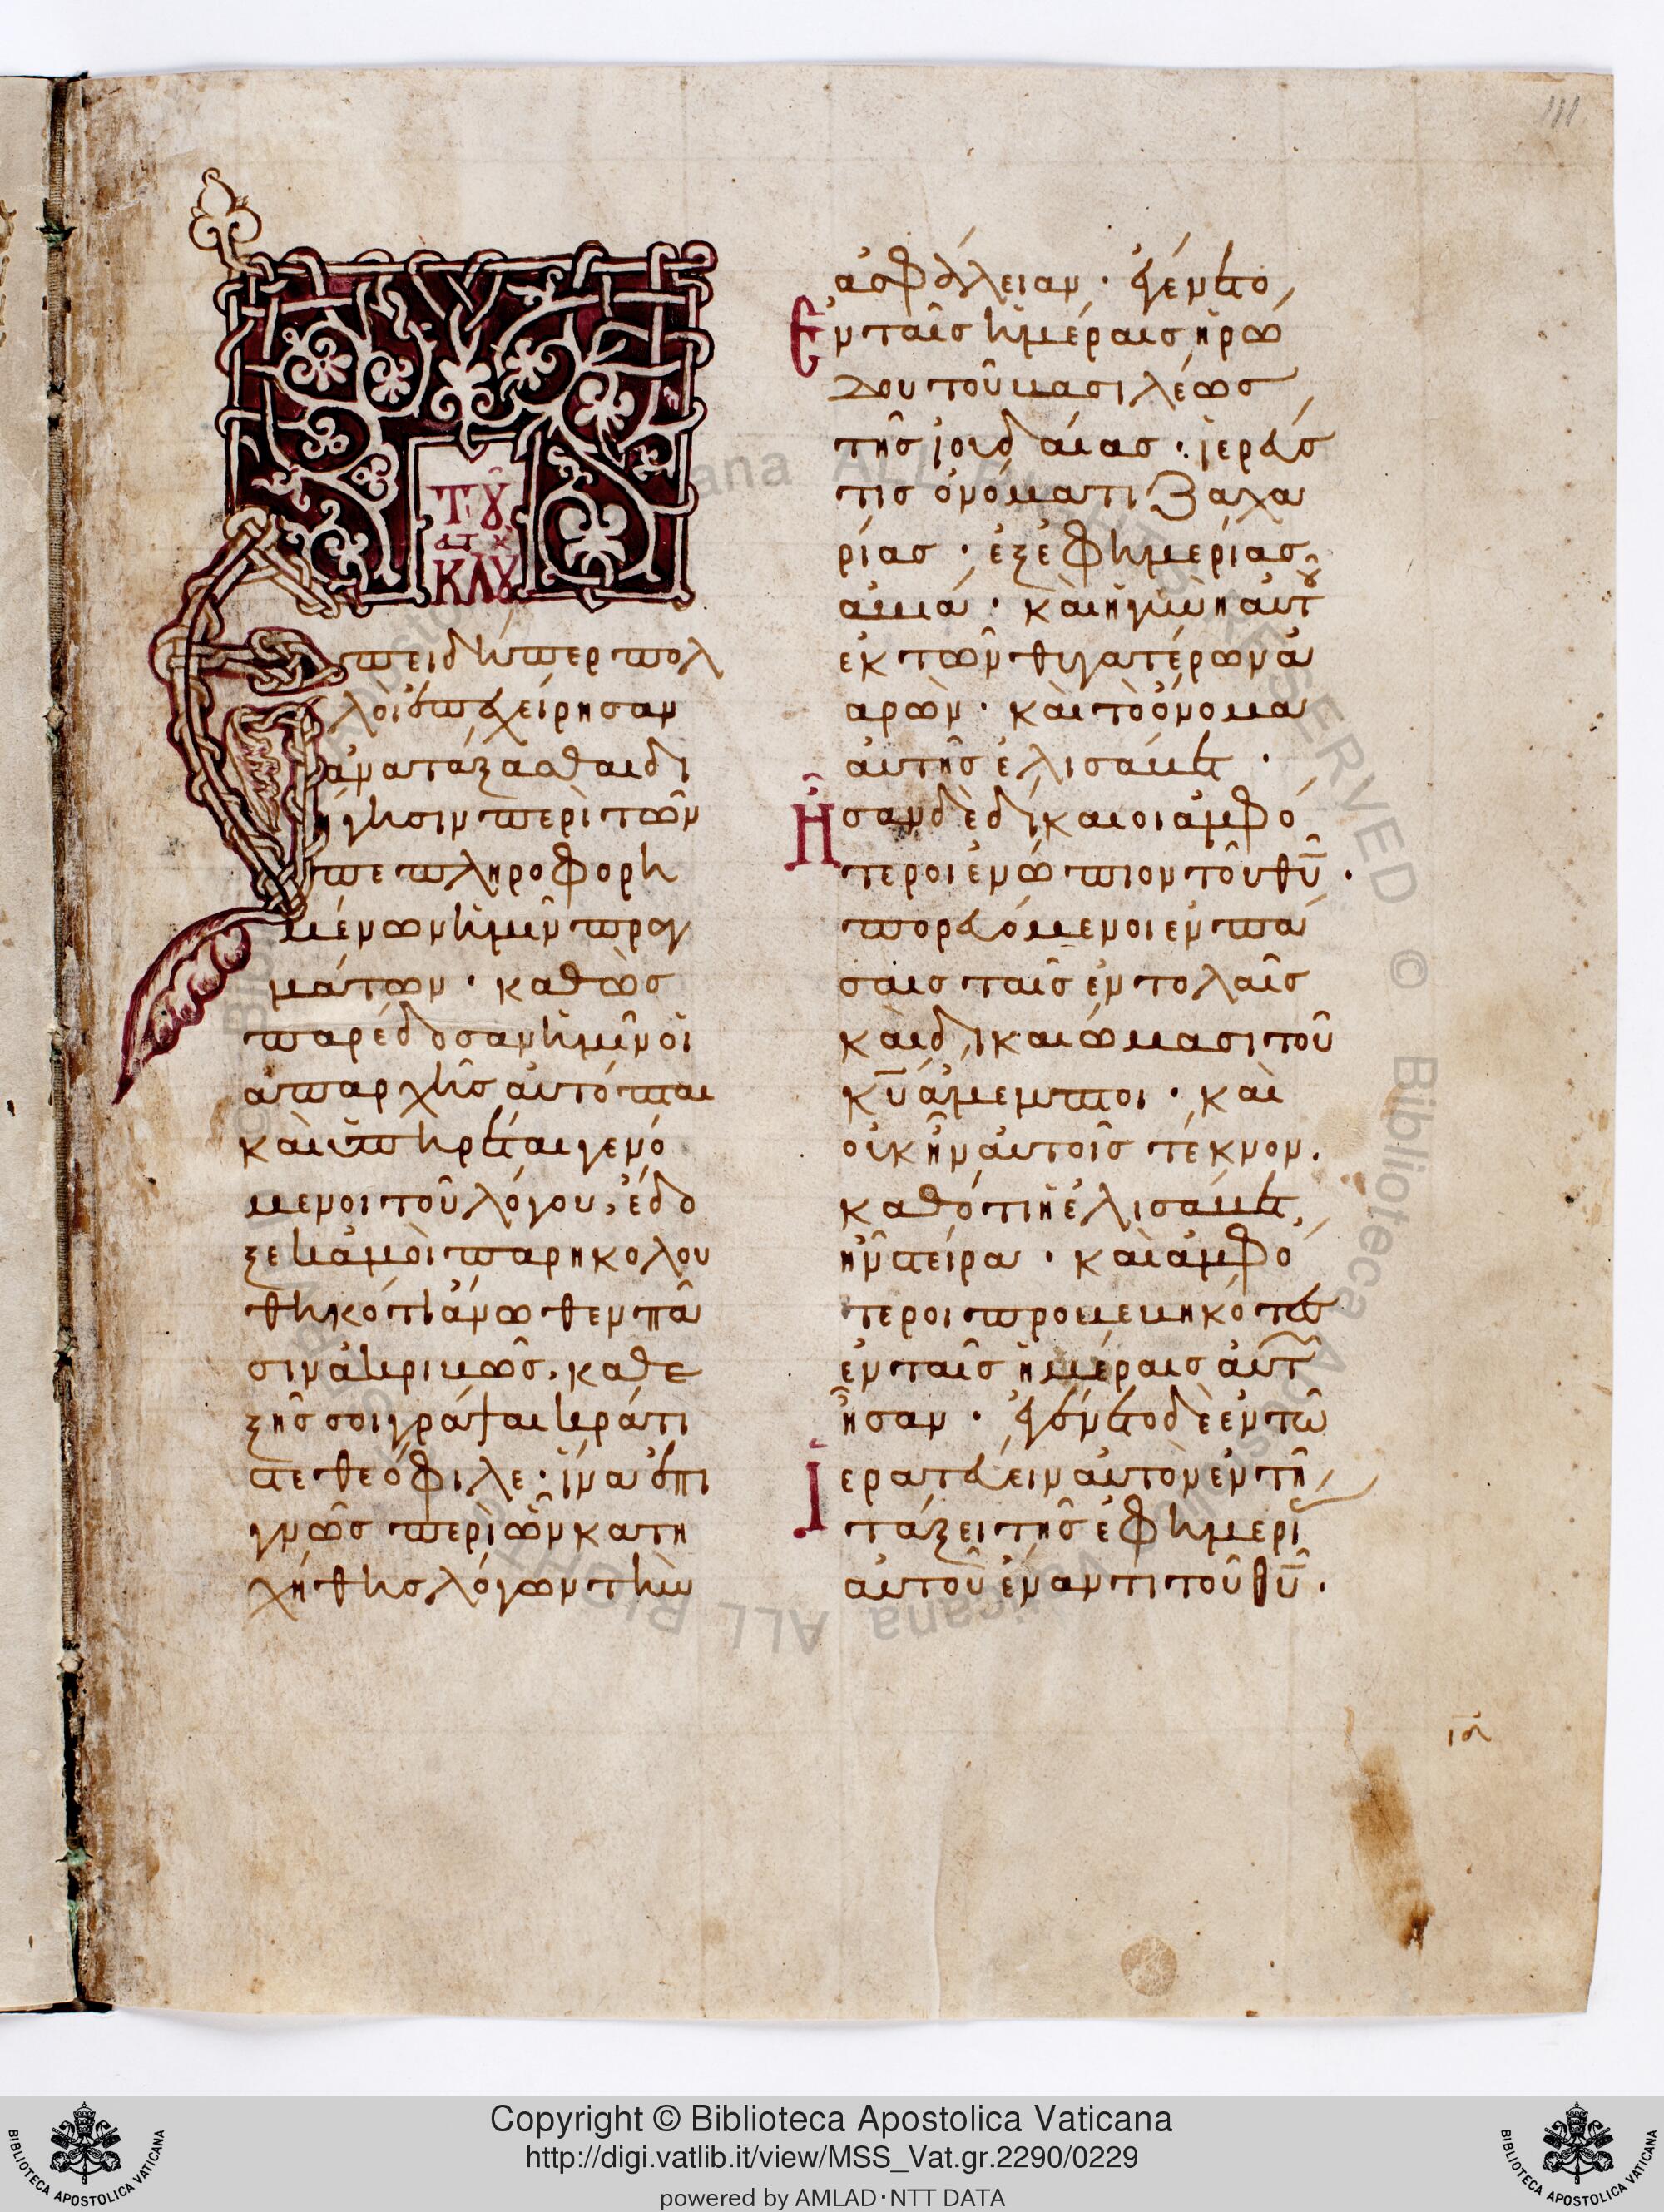 111
ΤΟΥ
ΚΛΟΥ
Ἐπειδήπερ πολ
λοὶ ἐπεχείρησαν
ἀνατάξασθαι δι
ήγησιν περὶ τῶν
πεπληροφορη
μένων ἡμῖν πραγ
μάτων · καθὼς
παρέδοσαν ἡμῖν οἱ
ἀπαρχῆς αὐτόπται
καὶ ὑπηρέται γενό
μενοι τοῦ λόγου, ἔδο
ξε κἀμοὶ παρηκολου
θηκότι ἄνωθεν πᾶ
σιν ἀκριβῶς. καθε
ξῆς σοι γράψαι κράτι
στε θεόφιλε · ἵνα ἐπι
γνῶς περὶ ὧν κατη
χήθης λόγων τὴν
ἀσφάλειαν · ἐγένετο,
Ἐν ταῖς ἡμέραις ἡρώ
δου τοῦ βασιλέως
τῆς ἰουδαίας · ἱερεύς
τις ὀνόματι Ζαχα
ρίας · ἐξ ἐφημερίας
ἀβιά · καὶ ἡ γυνὴ αὐτοῦ
ἐκ τῶν θυγατέρων ἀ
αρὼν · καὶ τὸ ὄνομα
αὐτῆς ἐλισάβετ ·
Ἦσαν δὲ δίκαιοι ἀμφό
τεροι ἐνώπιον τοῦ θῡ ·
πορευόμενοι ἐν πά
σαις ταῖς ἐντολαῖς
καὶ δικαιώμασι τοῦ
κῡ ἄμεμπτοι · καὶ
οὐκ ἦν αὐτοῖς τέκνον.
καθότι ἡ ἐλισάβετ,
ἦν στείρα · καὶ ἀμφό
τεροι προβεβηκότες
ἐν ταῖς ἡμέραις αὐτῶν
ἦσαν · ἐγένετο δὲ ἐν τῶ
Ἱερατεύειν αὐτὸν ἐν τῆ
τάξει τῆς ἐφημερί
αὐτοῦ ἔναντι τοῦ θῡ ·
Copyright © Biblioteca Apostolica Vaticana
http://digi.vatlib.it/view/MSS_Vat.gr.2290/0229
powered by AMLAD·NTT DATA
BIBLIOTECA APOSTOLICA VATICANA
BIBLIOTECA APOSTOLICA VATICANA